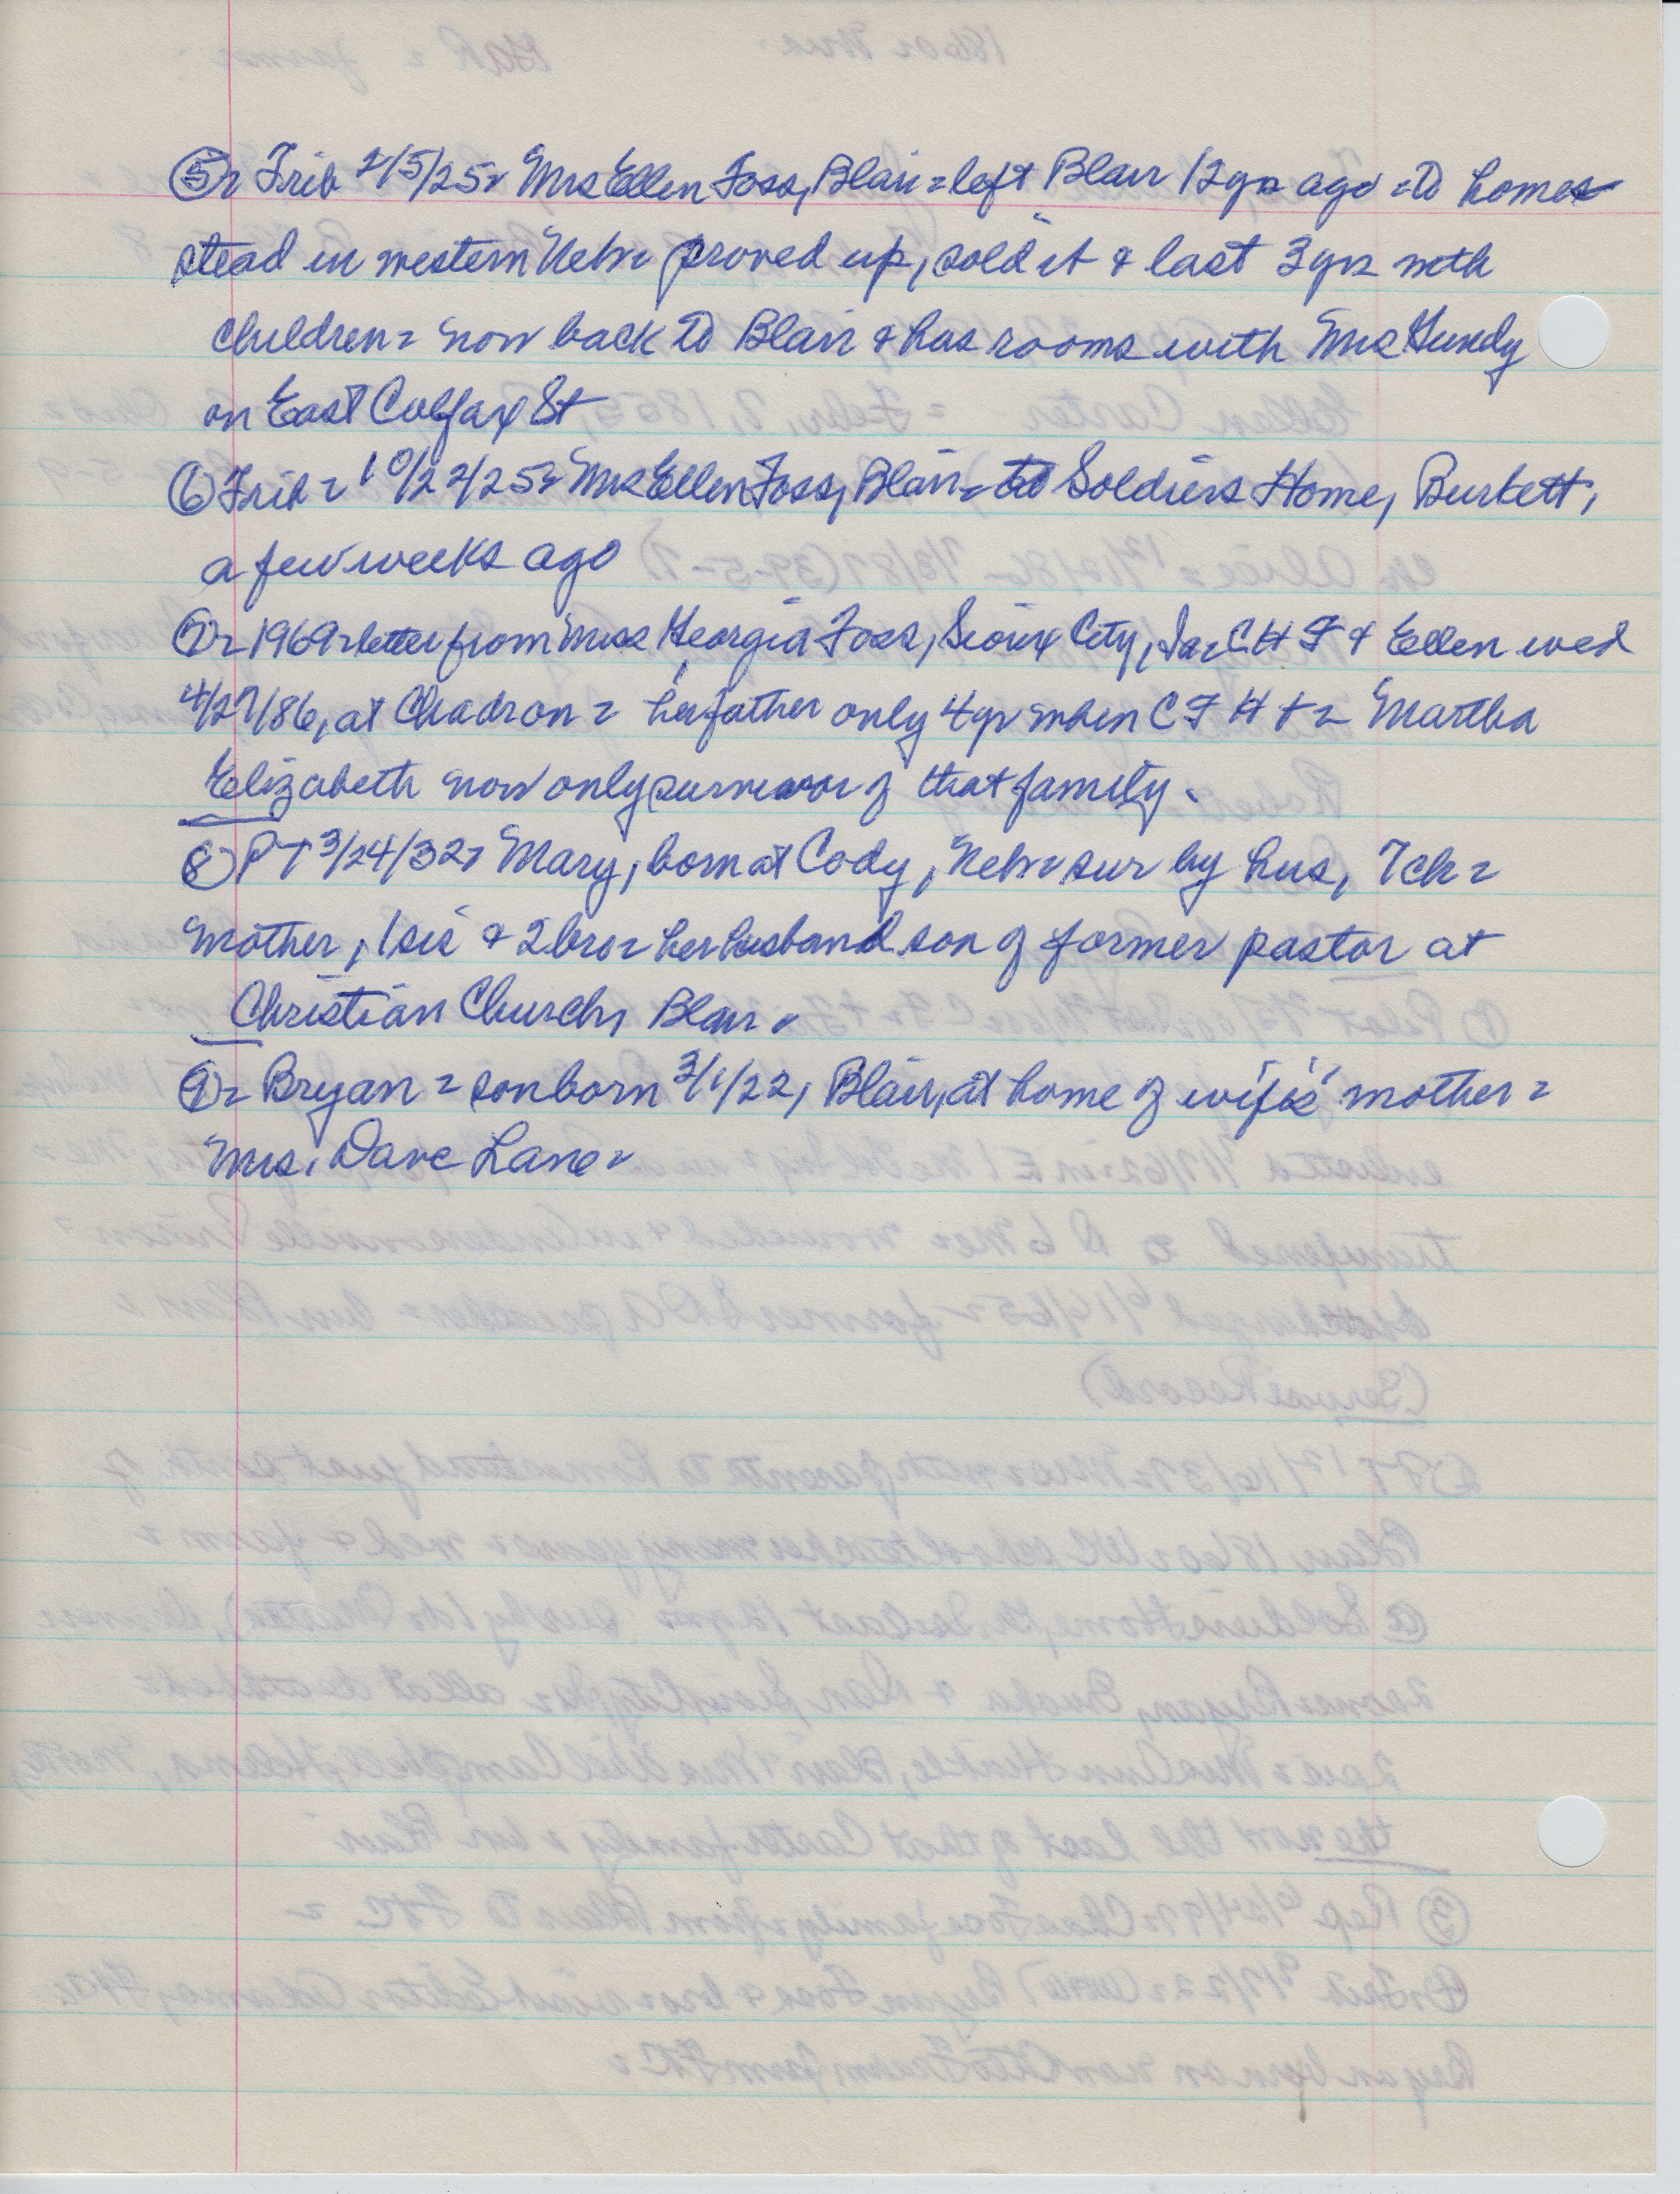 ⑤= Trib 2/5/25= Mrs Ellen Foss, Blair= left Blair 12 yrs ago = to home-
stead in western Nebr= proved up, sold it & last 3 yrs with
children= now back to Blair & has rooms with Mrs Gundy
on East Colfax St
⑥ Trib= 10/22/25= Mrs Ellen Foss, Blair= to Soldiers Home, Burkett,
a few weeks ago
⑦= 1969= letter from Miss Georgia Foss, Sioux City, Ia= C H F & Ellen wed
4/27/86, at Chadron= her father only 4 yr when C F H +=  Martha
Elizabeth now only survivor of that family.
⑧ P T 3/24/32= Mary, born at Cody, Nebr= sur by hus, 7 ch=
mother, 1 sis & 2 bro= her husband son of former pastor at
Christian Church, Blair=
⑨= Bryan= son born 3/1/22, Blair, at home of wife's mother=
Mrs. Dave Lane=